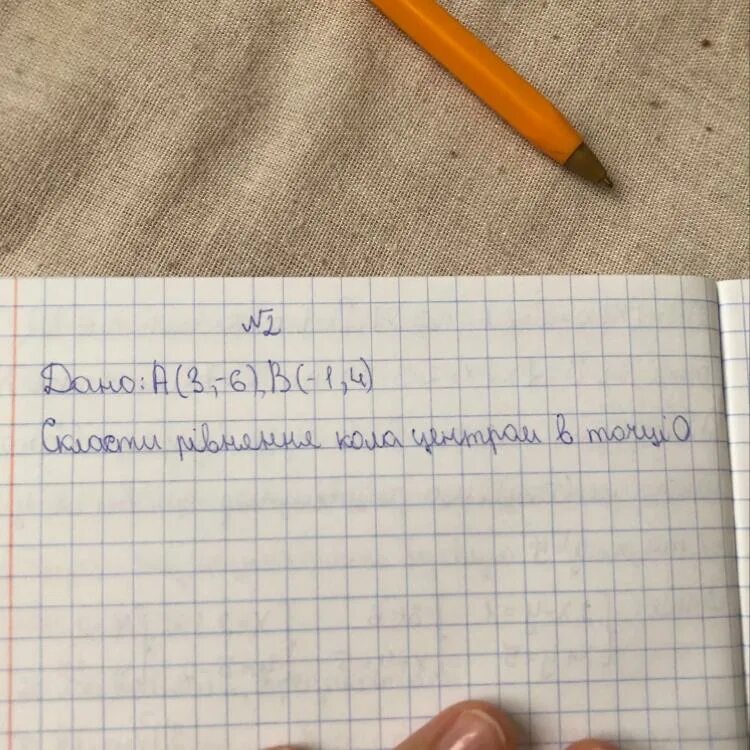 №2
Дано: А(3,-6), В(-1,4)
Скласти рівняння кола центром в точці О